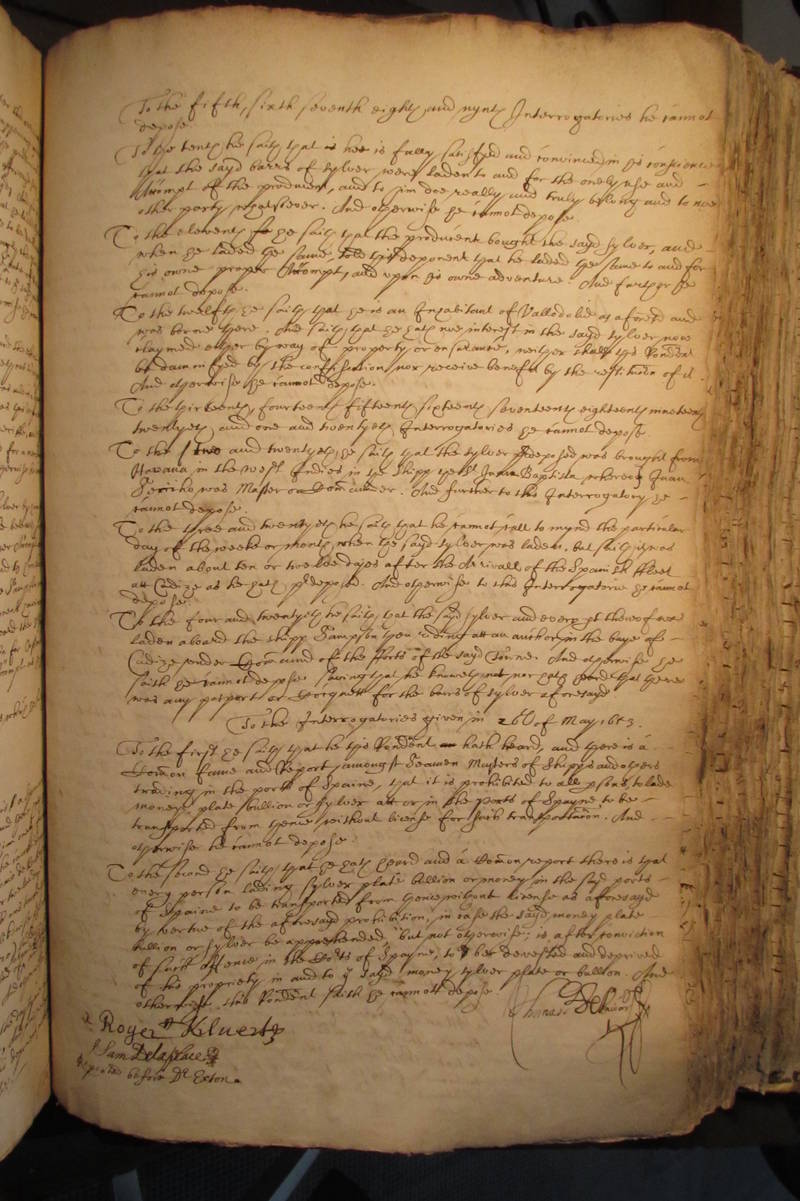 To the fifth, sixth seventh eighth and nynth Interrogatories he cannot
depose.
To the tenth he saith that is hee is fully satisfyed and convinced in his conscience
that the sayd barrs of sylver were laden to and for the onely use and
Accompt of the producent, and to him doe really and truly belong and to noe
other party whatsoever. And otherwise he cannot depose.
To the eleventh he saith that the producent bought the sayd sylver, and
when he laded the same, told this deponent that he laded the same to and for
his owne proper Accompt, and upon his owne adventure. And further he
cannot depose.
To the twelfth he saith that he is an Inhabitant of Valladolid as aforesd and
was borne there. And saith that he hath noe interest in the sayd sylver now
claymed either by way of property or ensurance, neither shall this Rondent
be damnifyed by the confiscation nor receive benefit by the restitution of it.
And otherwise he cannot depose.
To the thirteenth, fourteenth fifteenth sixteenth seventeenth eighteenth nineteenth
twentyeth and one and twentyeth Interrogatories he cannot depose.
To the two and twentyeth he saith that the sylver pdeposed was brought from
Havana in the West Indies in the shipp the St Juan Baptista whereof Juan
was Master or Comander. And further to this Interrogatory he
cannot depose.
To the three and twentyeth he saith that he cannot call to mynd the particular
day of the weeke or month when the sayd sylver was laden, but saith it was
laden about ten or twelve dayes after the Arrivall of the Spanish fleet
att Cadize as he hath pdeposed. And otherwise to this Interrogatorie he cannot
depose.
To the four and twentyeth he saith that the sayd sylver and every pt thereof was
laden aboard the shipp Sampson then riding att an anchor in the baye of
Cadize under Comaund of the fforts of the sayd Towne. And otherwise he
saith he cannot depose saving that he knoweth not nor hath heard that there
was any pasport or for the barrs of sylver aforesayd
To the Interrogatories given in 26th of May 1653.
To the first he saith that he this Rondent hath heard, and there is a
Comon fame and Report amongst Seamen Masters of shipps and others
trading in the ports of Spaine, that it is prohibited to all psons to lade
moneys plate bullion or sylver att or in the ports of Spayne to be
transported from thence without license for such transportacion. And
otherwise he cannot depose.
To the second he saith that he hath heard and a Comon report there is that
every person lading sylver plate bullion or money in the sayd ports
of Spaine to be transported from thence without license as aforesayd
by vertue of the aforesayd prohibition, in case the sayd money plate
bullion or sylver be apprehended, but not otherwise; is after conviction
of such offence in the Corts of Spayne, to be devested and deprived
of his propriety in and to ye sayd money sylver plate or bullion. And
otherwise this Rondent saith he cannott depose
Roger Kilvert
Sam Delaplace
before Dr Exton.